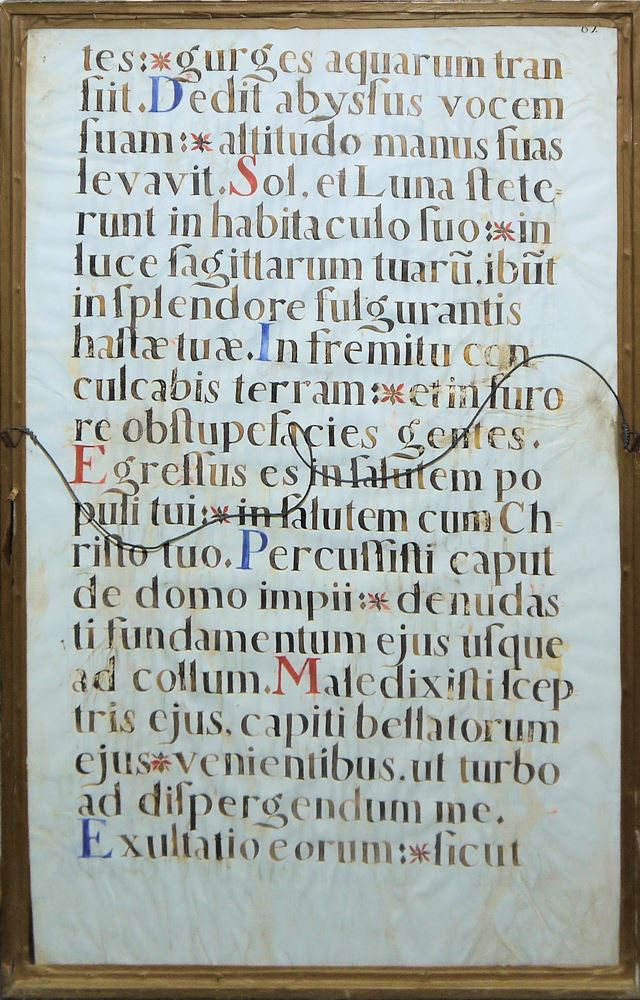 67.
tes:* gurges aquarum tran
ſiit. Dedit abyſſus vocem
ſuam:* altitudo manus ſuas
levavit. Sol, et Luna ſtete-
runt in habitaculo ſuo:* in
luce ſagittarum tuarū. ibūt
in ſplendore fulgurantis
haſtæ tuæ. In fremitu con
culcabis terram:* et in furo
re obſtupefacies gentes.
Egreſſus es in ſalutem po
puli tui:* in ſalutem cum Ch-
riſto tuo. Percuſſiſti caput
de domo impii:* denudas
ti fundamentum ejus uſque
ad collum. Maledixiſti ſcep
tris ejus, capiti bellatorum
ejus* venientibus. ut turbo
ad diſpergendum me.
Exultatio eorum:* ſicut